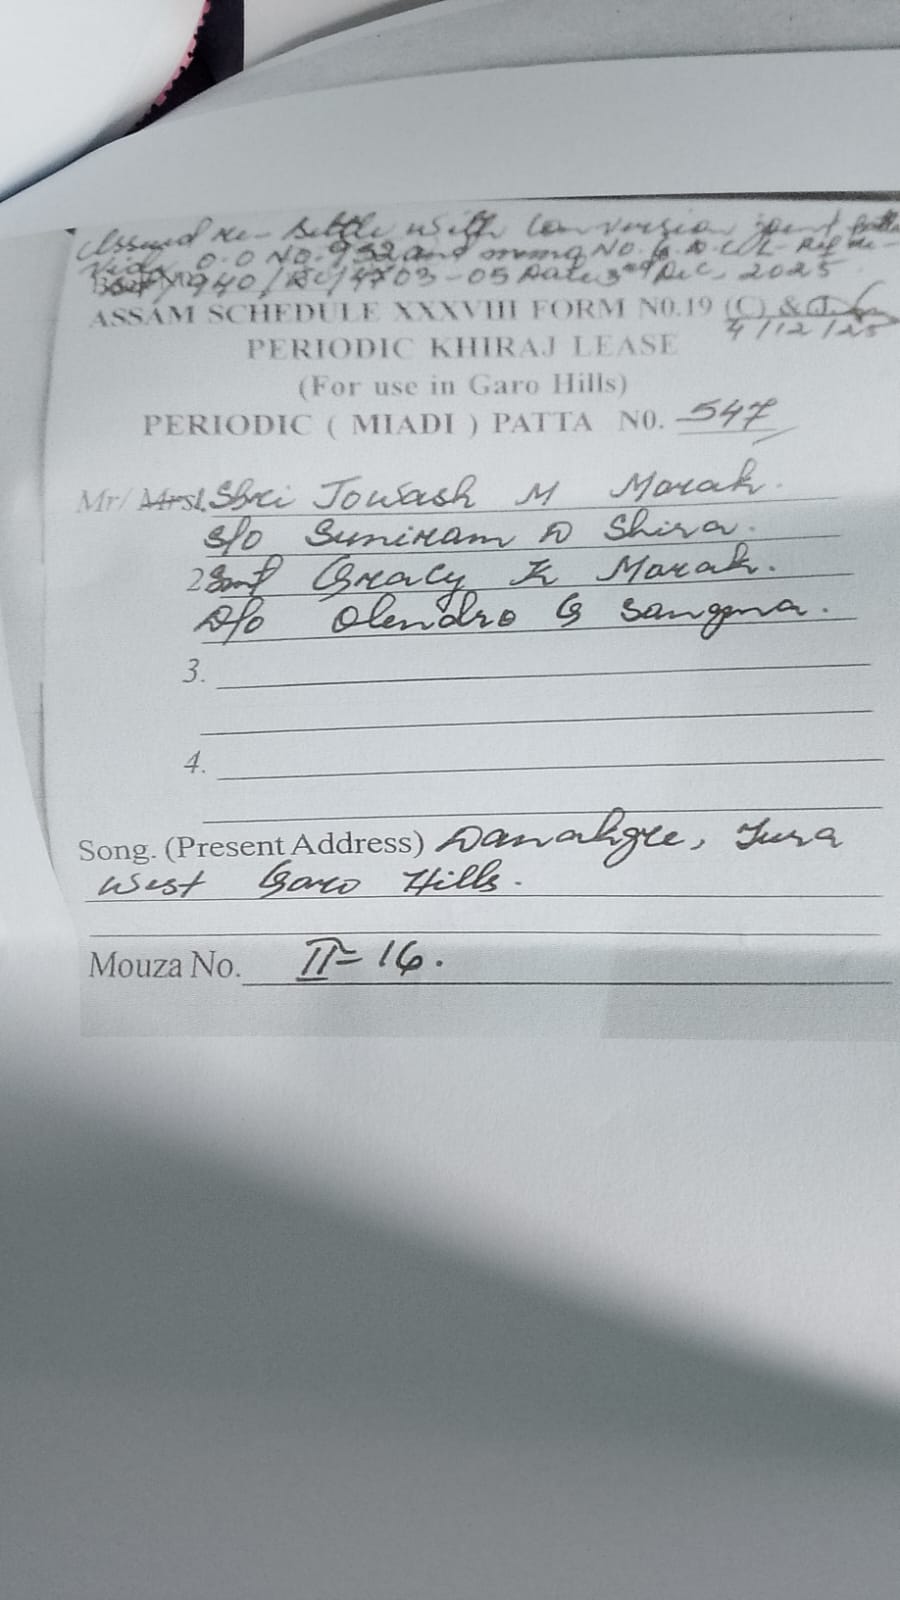 Issued re-settle with conversion joint patta
vide O.O No. 932 and memo No. G.D.C.R. Ref Re-
1940/RC/4703-05 Date 3rd Dec, 2025
ASSAM SCHEDULE XXXVIII FORM N0.19 (C) &
4/12/25
PERIODIC KHIRAJ LEASE
(For use in Garo Hills)
PERIODIC ( MIADI ) PATTA N0. 547
Mr/ Mrs1. Shri Jowash M Marak.
S/o Suniram D Shira.
2 Smt Gracy K Marak.
D/o Olendro G Sangma.
3.
4.
Song. (Present Address) Danakgre, Tura
West Garo Hills.
Mouza No. II-16.